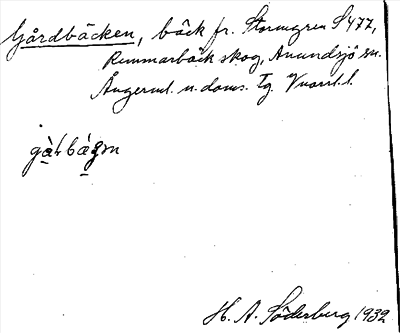 Gårdbäcken, bäck fr. Stormyren S 477,
Remmarbäck skog, Anundsjö sn.
Ångerml. n. doms. Tg
gàɫbágɱ
H. A. Söderberg 1932